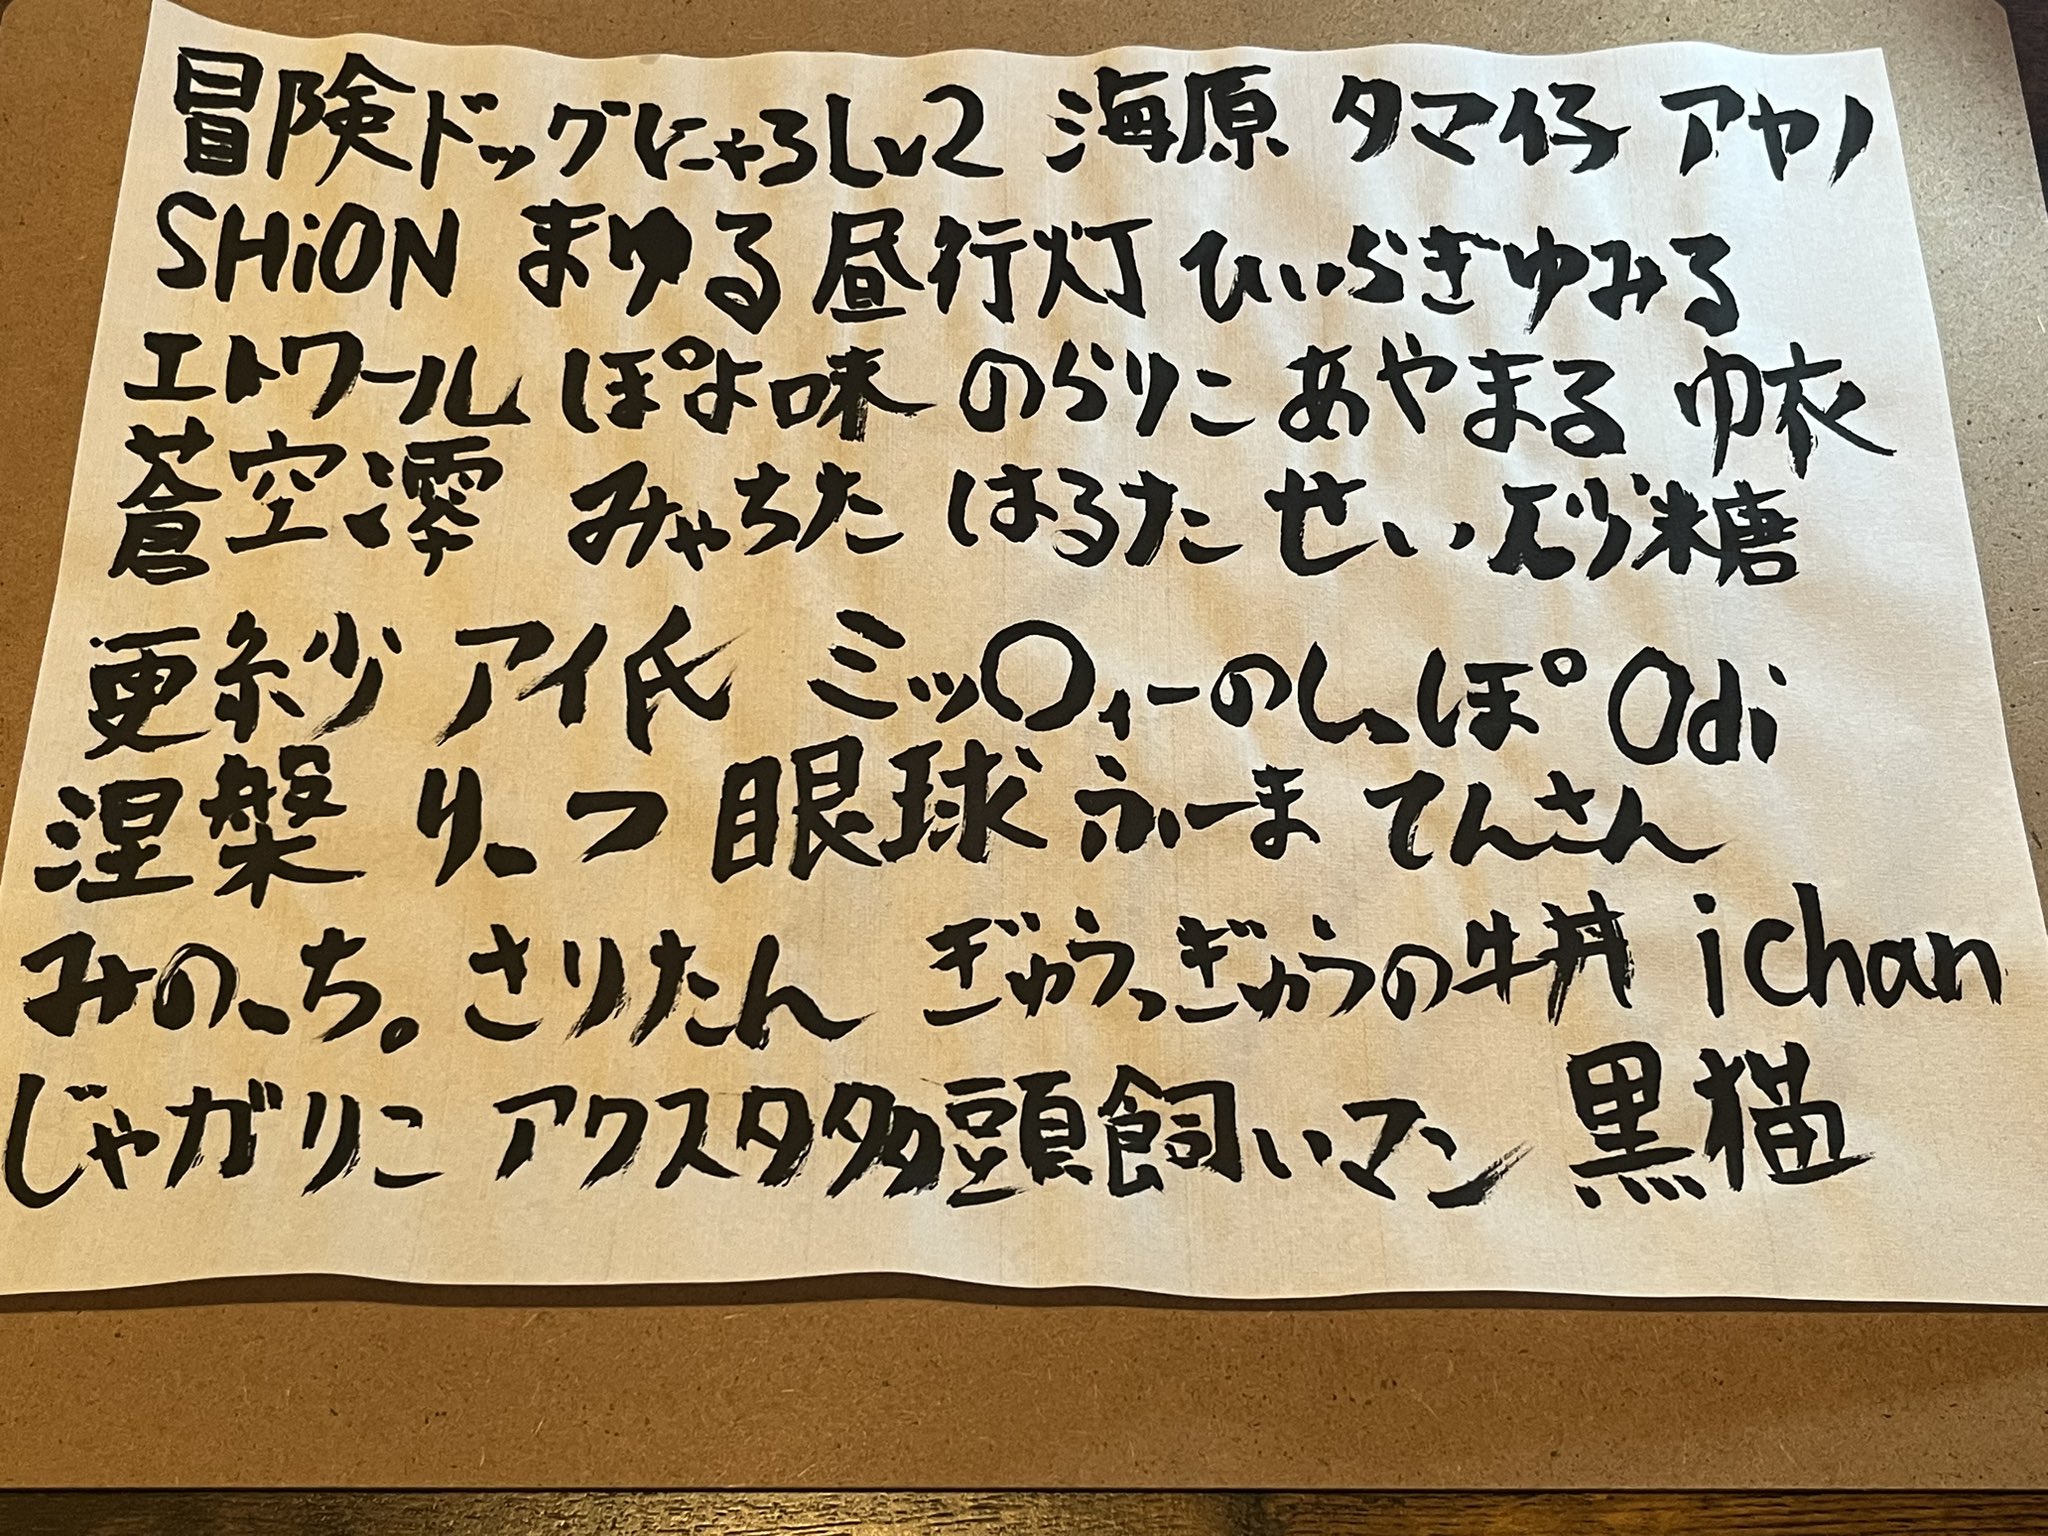 冒険ドッグにゃろLv2 海原 タマ仔 アヤノ
SHiON まゆる 昼行灯 ひいらぎゆみる
エトワール ぽよ味 のらりこ あやまる 巾衣
蒼空澪 みゃちた はるた せい 砂糖
更紗 アイ氏 ミッ〇ィーのしっぽ Odi
涅槃 りっつ 眼球 ふぃーま てんさん
みのっち。 さりたん ぎゅうっぎゅうの牛丼 ichan
じゃガりこ アクスタ多頭飼いマン 黒猫